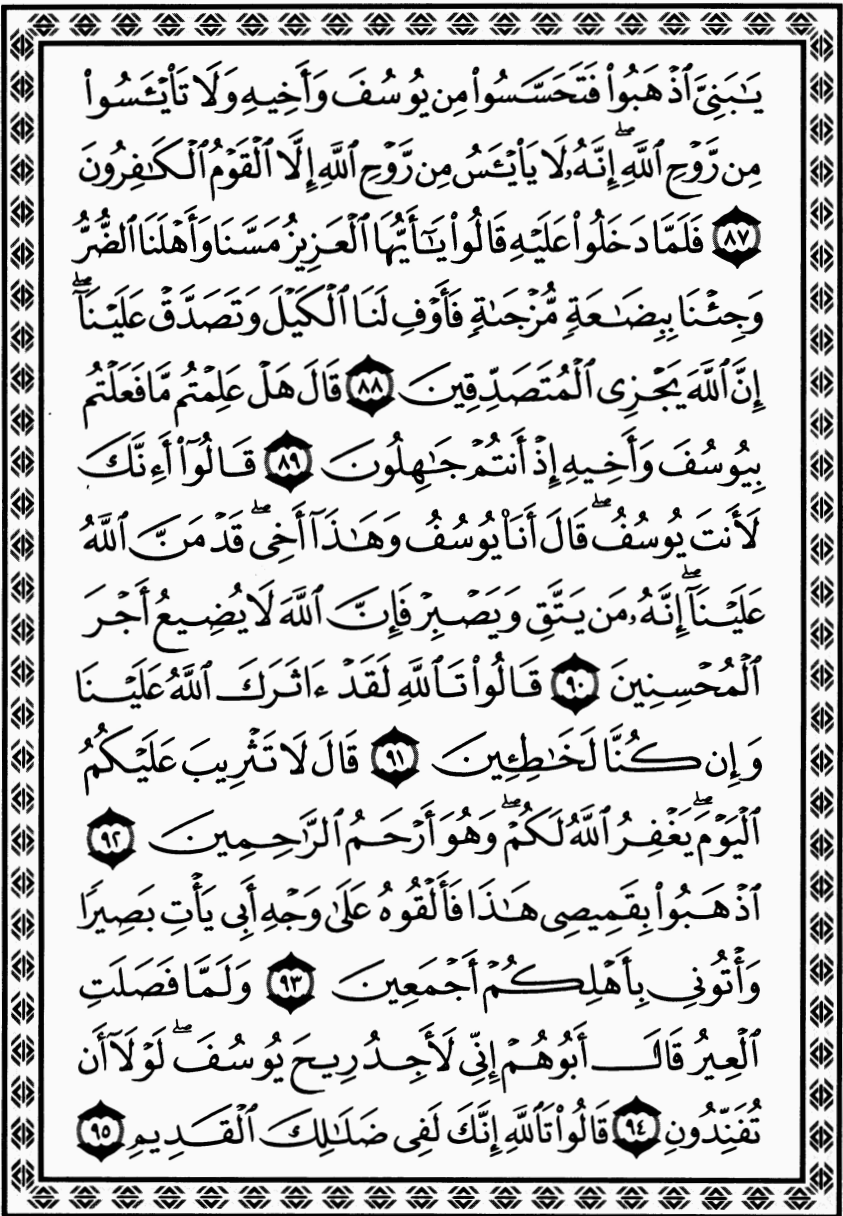 يَـٰبَنِىَّ ٱذْهَبُوا۟ فَتَحَسَّسُوا۟ مِن يُوسُفَ وَأَخِيهِ وَلَا تَا۟يْـَٔسُوا۟
مِن رَّوْحِ ٱللَّهِ ۖ إِنَّهُۥ لَا يَا۟يْـَٔسُ مِن رَّوْحِ ٱللَّهِ إِلَّا ٱلْقَوْمُ ٱلْكَـٰفِرُونَ
٨٧ فَلَمَّا دَخَلُوا۟ عَلَيْهِ قَالُوا۟ يَـٰٓأَيُّهَا ٱلْعَزِيزُ مَسَّنَا وَأَهْلَنَا ٱلضُّرُّ
وَجِئْنَا بِبِضَـٰعَةٍ مُّزْجَىٰةٍ فَأَوْفِ لَنَا ٱلْكَيْلَ وَتَصَدَّقْ عَلَيْنَآ ۖ
إِنَّ ٱللَّهَ يَجْزِى ٱلْمُتَصَدِّقِينَ ٨٨ قَالَ هَلْ عَلِمْتُم مَّا فَعَلْتُم
بِيُوسُفَ وَأَخِيهِ إِذْ أَنتُمْ جَـٰهِلُونَ ٨٩ قَالُوٓا۟ أَءِنَّكَ
لَأَنتَ يُوسُفُ ۖ قَالَ أَنَا۠ يُوسُفُ وَهَـٰذَآ أَخِى ۖ قَدْ مَنَّ ٱللَّهُ
عَلَيْنَآ ۖ إِنَّهُۥ مَن يَتَّقِ وَيَصْبِرْ فَإِنَّ ٱللَّهَ لَا يُضِيعُ أَجْرَ
ٱلْمُحْسِنِينَ ٩٠ قَالُوا۟ تَٱللَّهِ لَقَدْ ءَاثَرَكَ ٱللَّهُ عَلَيْنَا
وَإِن كُنَّا لَخَـٰطِـِٔينَ ٩١ قَالَ لَا تَثْرِيبَ عَلَيْكُمُ
ٱلْيَوْمَ ۖ يَغْفِرُ ٱللَّهُ لَكُمْ ۖ وَهُوَ أَرْحَمُ ٱلرَّٰحِمِينَ ٩٢
ٱذْهَبُوا۟ بِقَمِيصِى هَـٰذَا فَأَلْقُوهُ عَلَىٰ وَجْهِ أَبِى يَأْتِ بَصِيرًا
وَأْتُونِى بِأَهْلِكُمْ أَجْمَعِينَ ٩٣ وَلَمَّا فَصَلَتِ
ٱلْعِيرُ قَالَ أَبُوهُمْ إِنِّى لَأَجِدُ رِيحَ يُوسُفَ ۖ لَوْلَآ أَن
تُفَنِّدُونِ ٩٤ قَالُوا۟ تَٱللَّهِ إِنَّكَ لَفِى ضَلَـٰلِكَ ٱلْقَدِيمِ ٩٥